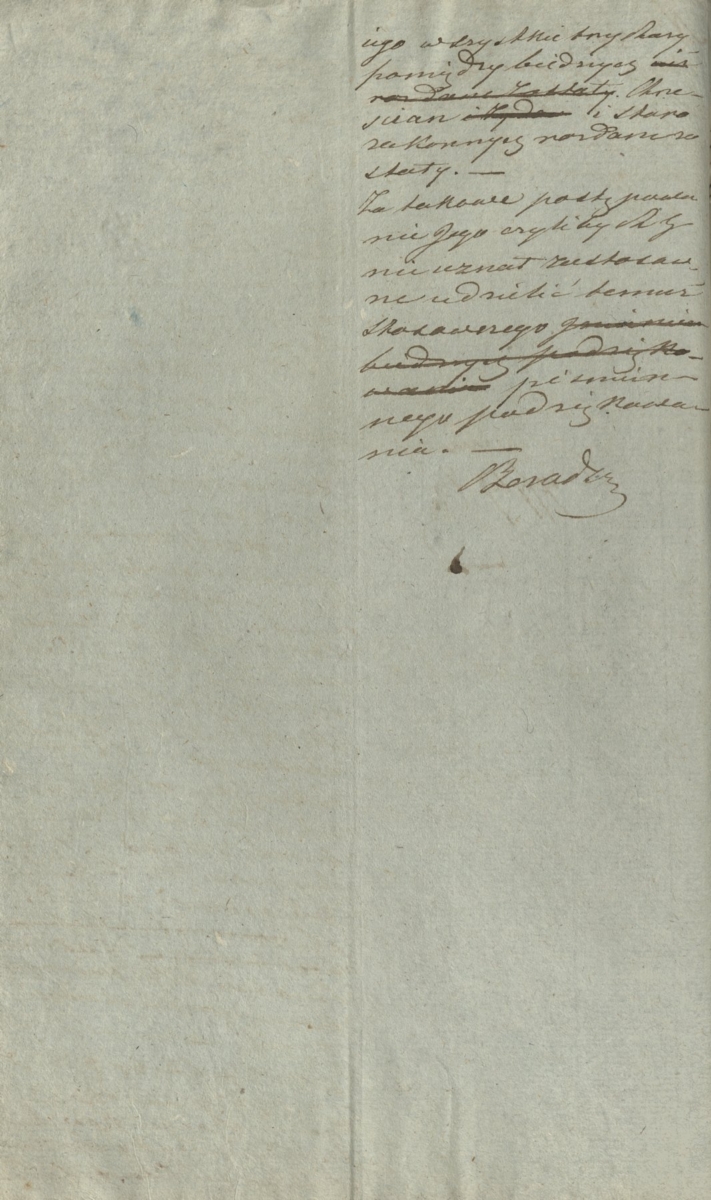 iego wszystkie trychary
pomiędzy biednych nie
rozdane zostały. Chrze-
scian i Żydow i staro
zakonnych rozdane zo
stały. —
Za takowe postępowa
nie Jego czyliby
nie uznał zastosow
ne udzielić temuż
stosownego
biednych podzięko-
wanie piśmien-
nego podziękowa-
nia. —